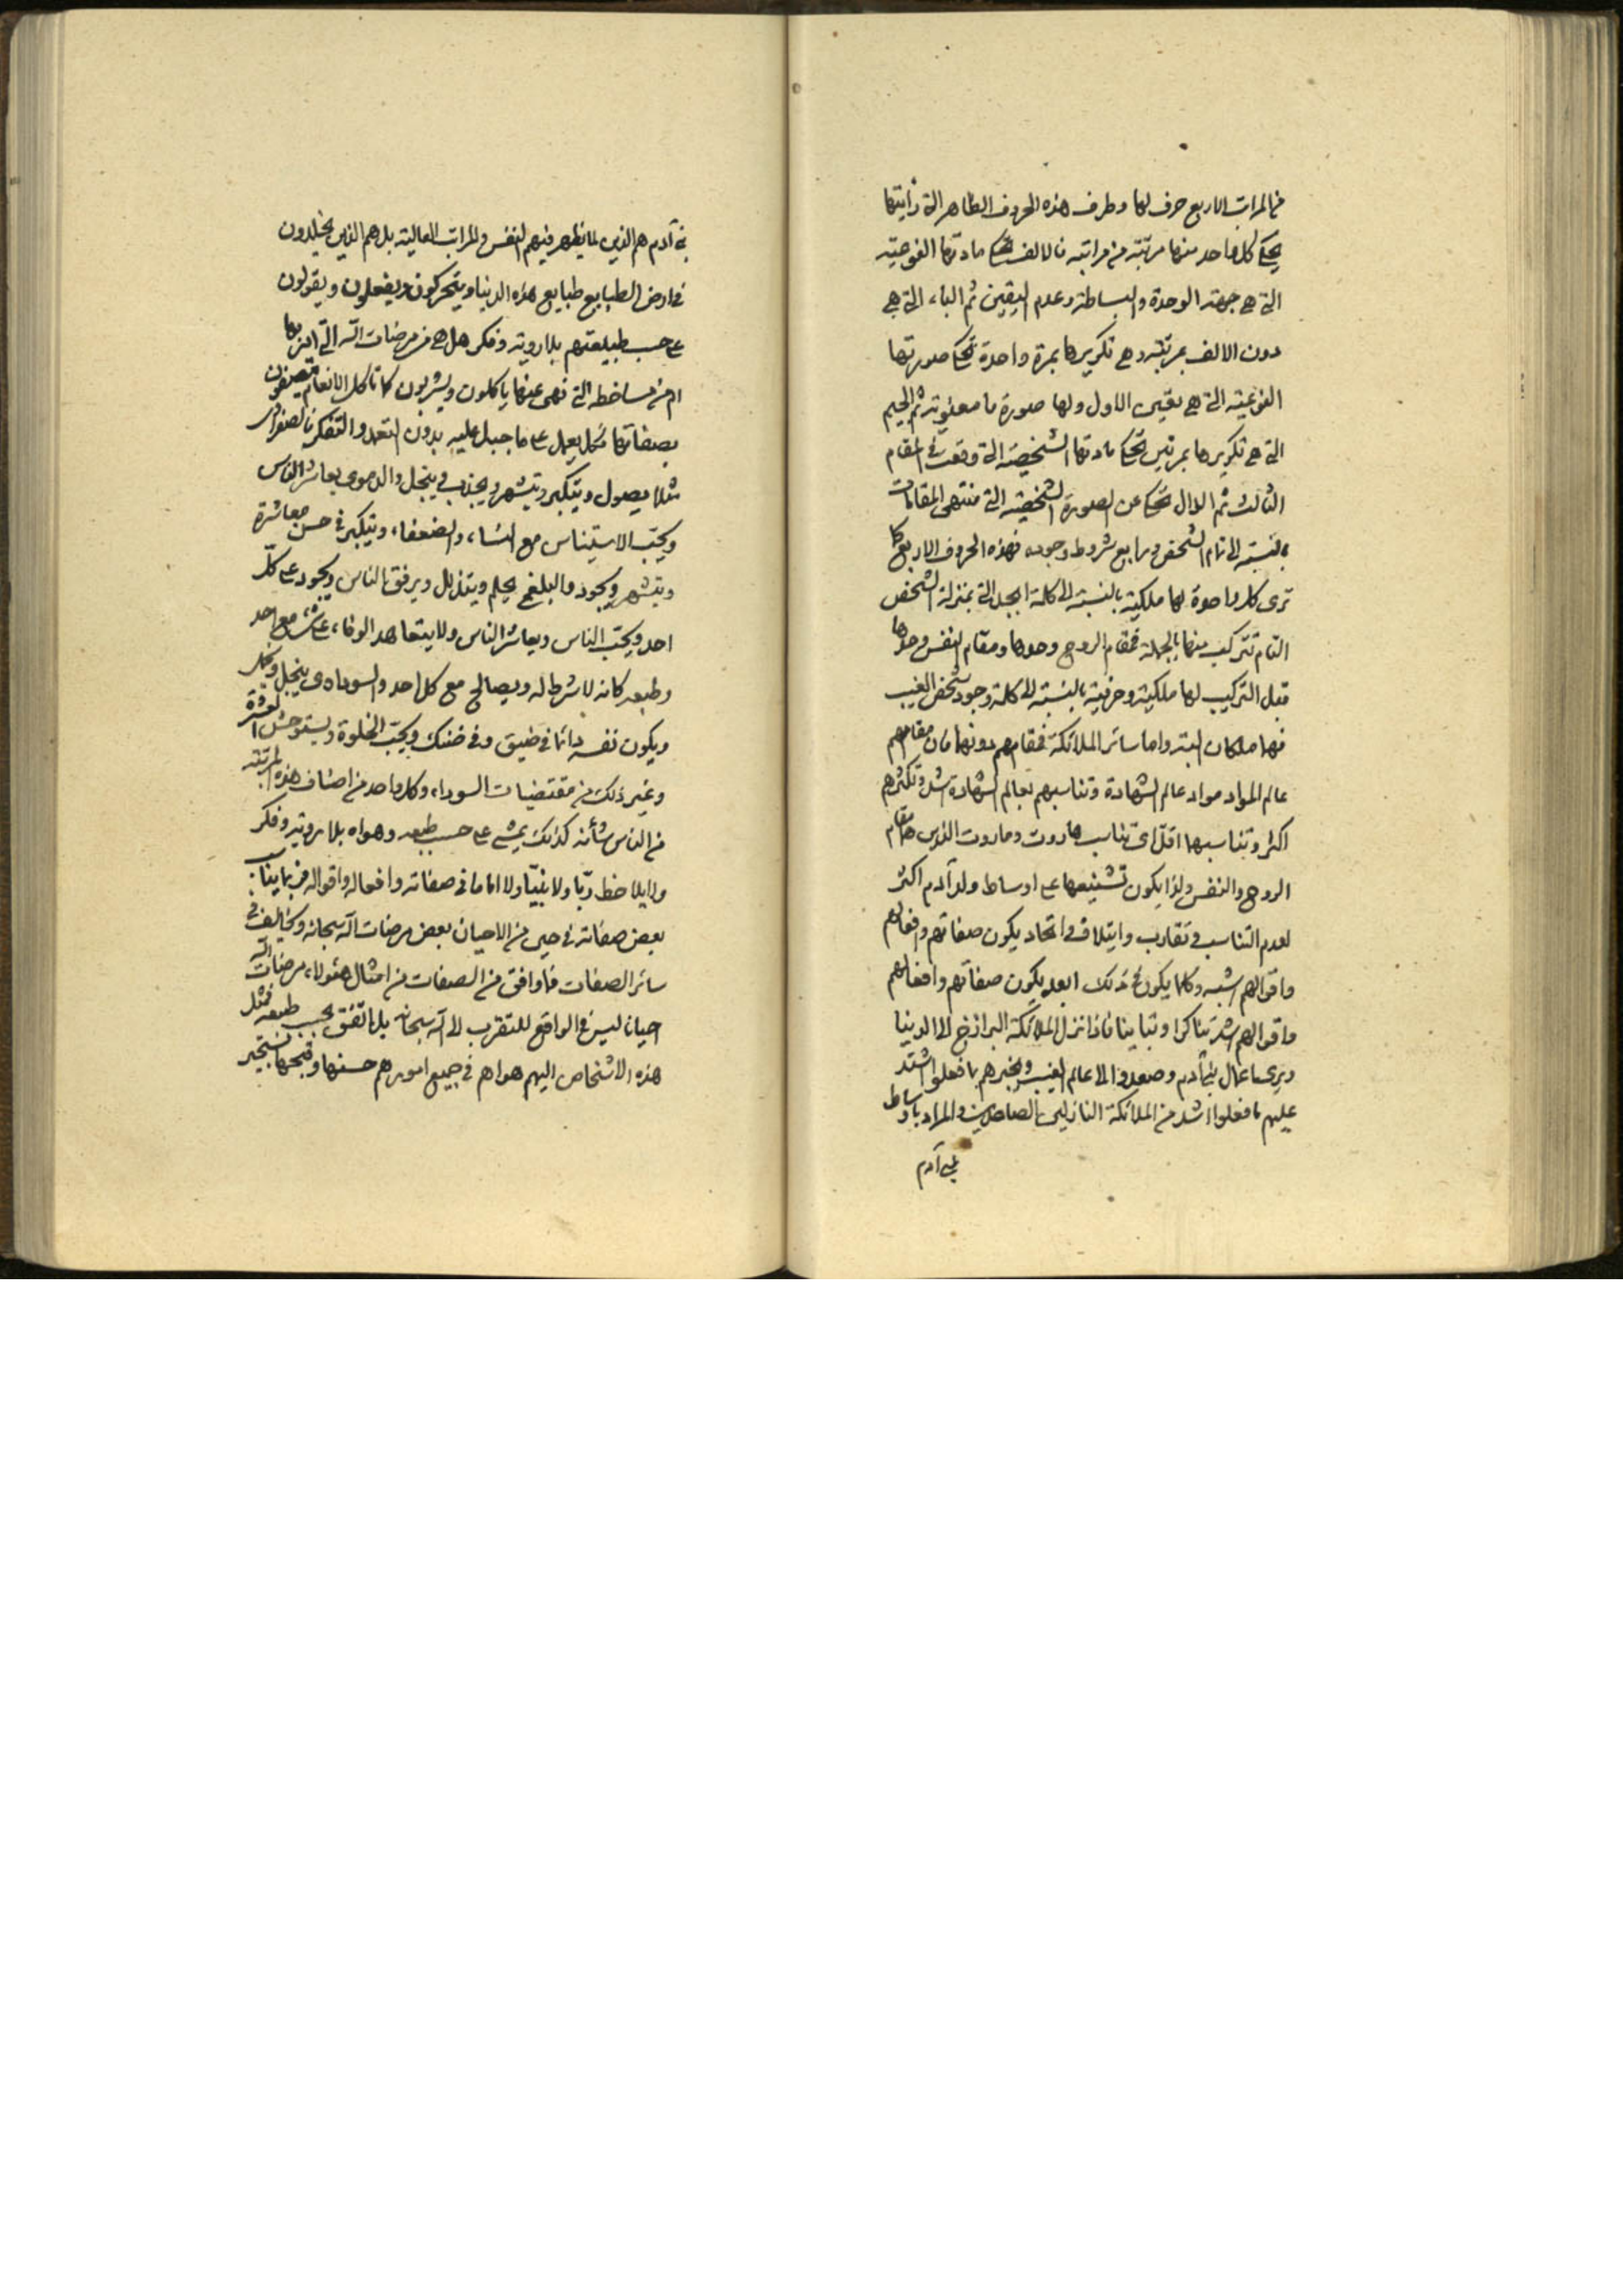 من المراتب الاربع حرف لها وطرف هذه الحروف الظاهر التى رايتها
يحكى كل واحد منها مرتبة من مراتبه فالالف تحكى مادتها النوعية
التى هى جهة الوحدة والبساطة وعدم التعين ثم الباء التى هى
دون الالف بمرتبة وهى تكريرها بمرة واحدة تحكى صورتها
النوعية التى هى تعين الاول ولها صورة ما معنوية ثم الجيم
التى هى تكريرها بمرتين تحكى مادتها الشخصية التى وقعت فى المقام
الثالث ثم الدال تحكى عن الصورة الشخصية التى منتهى المقامات
بالنسبة الى تمام الشخص ورابع شروط وجوده فهذه الحروف الاربع كما
ترى كل واحدة لها ملكية بالنسبة الى كلمة ابجد التى بمنزلة الشخص
التام تتركب منها بالجملة فمقام الروح وحدها ومقام النفس وحدها
قبل التركيب لها ملكية وحرفية بالنسبة الى كلمة وجود شخص الغيب
فهما ملكان البتة واما سائر الملائكة فمقامهم دونها فان مقامهم
عالم المواد مواد عالم الشهادة وتناسبهم بعالم الشهادة اشد وتكثرهم
اكثر وتناسبها اقل اى تناسب هاروت وماروت الذين هما مقام
الروح والنفس ولذا يكون تشنيعها على اوساط ولد آدم اكثر
لعدم التناسب فى تقارب وايتلاف واتحاد يكون صفاتهم وافعالهم
واقوالهم اشبه وكلما يكون فى ذلك ابعد يكون صفاتهم وافعالهم
واقوالهم اشد تناكرا وتباينا فاذا نزل الملائكة البرازخ الى الدنيا
ويرى اعمال بنى آدم وصعدوا الى عالم الغيب ويخبرهم بما فعلوا اشتد
عليهم ما فعلوا اشد من الملائكة النازلين الصاعدين والمراد باوساط
بنى آدم
بنى آدم هم الذين لا يظهر فيهم النفس والمراتب العالية بل هم الذين يخلدون
فى ارض الطبايع طبايع هذه الدنيا ويتحركون ويفعلون ويقولون
على حسب طبيعتهم بلا روية وفكر هل هى من مرضات الله التى امر بها
ام من مساخطه التى نهى عنها ياكلون ويشربون كما تاكل الانعام يتصفون
بصفاتها فكل يعمل على ما جبل عليه بدون التعمد والتفكر فالصفراوى
مثلا يصول ويتكبر ويتشهر ويجذب ويبخل والدموى يعاشر الناس
ويحب الاستيناس مع النساء والضعفاء ويتكبر فى حسن معاشرة
ويتشهر ويجود والبلغمى يحلم ويتذلل ويرفق بالناس ويجود على كل
احد ويحب الناس ويعاشر الناس ولا يتعاهد الوفاء على شىء مع احد
وطبعه كانه لا شرط له ويصالح مع كل احد والسوداوى يبخل ويفكر
ويكون نفسه دائما فى ضيق وفى ضنك ويحب الخلوة ويستوحش العشرة
وغير ذلك من مقتضيات السوداء وكل واحد من اصناف هذه المرتبة
من الناس شأنه كذلك يمشى على حسب طبعه وهواه بلا روية وفكر
ولا يلاحظ ربا ولا نبيا ولا اماما فى صفاته وافعاله واقواله فربما يناسب
بعض صفاته فى حين من الاحيان بعض مرضات الله سبحانه ويخالف فى
سائر الصفات فما وافق من الصفات من امثال هؤلاء مرضات الله
احيانا ليس فى الواقع للتقرب الى الله سبحانه بل ما اتفق بحسب طبعه فمثل
هذه الاشخاص اليهم هواهم فى جميع امورهم حسنها وقبحها